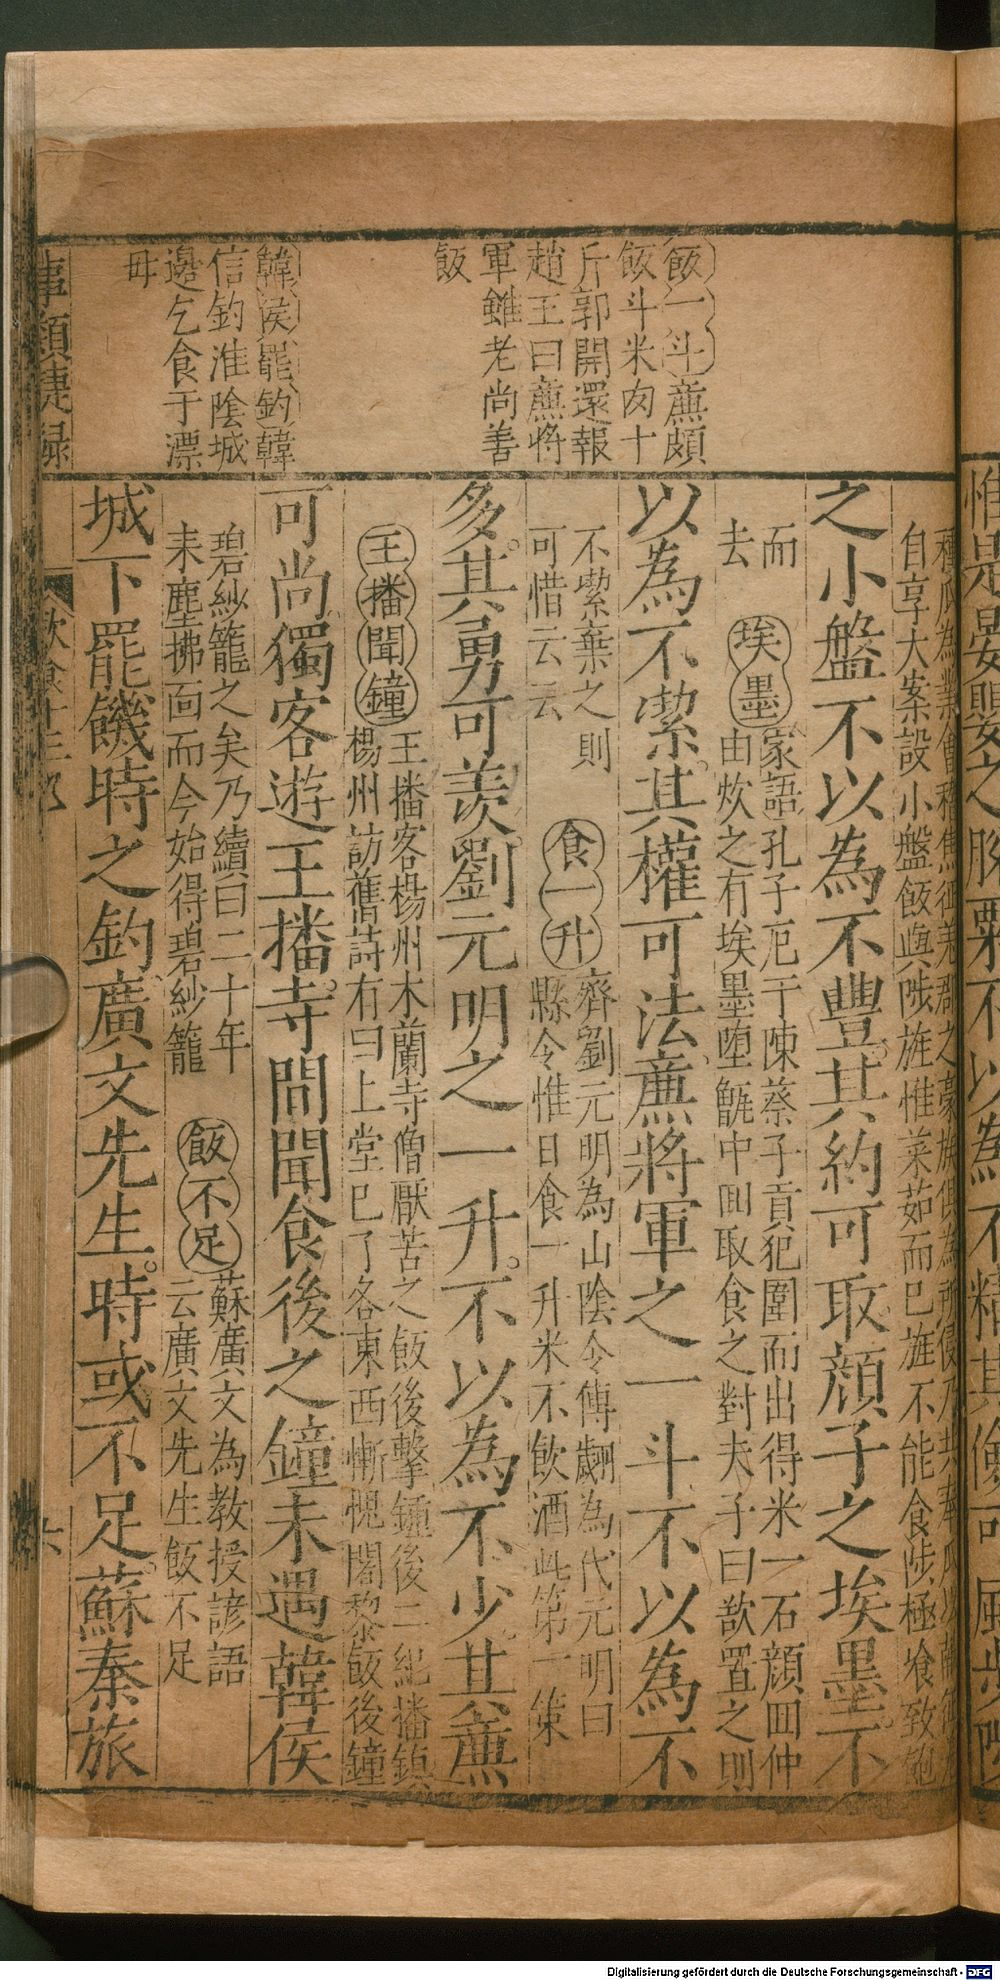 飯一斗㢘頗
飯斗米肉十
斤郭開還報
趙王曰㢘將
軍雖老尚善
飯
韓侯罷釣韓
信釣淮陰城
邊乞食于漂
毋
自享大案設小盤飯與陟旌惟菜茹而已旌不能食陟極飡致飽
之小盤不以為不豐其約可取顔子之埃墨不
而
去
埃墨
家語孔子厄于陳蔡子貢犯圍而出得米一石顔回仲
由炊之有埃墨墮甑中回取食之對夫子曰欲置之則
以為不潔其權可法㢘將軍之一斗不以為不
不潔棄之則
可惜云云
食一升
齊劉元明為山陰令傅翽為代元明曰
縣令惟日食一升米不飲酒此第一策
多其勇可羡劉元明之一升不以為不少其㢘
王播聞鐘
王播客楊州木蘭寺僧厭苦之飯後擊鐘後二紀播鎮
楊州訪舊詩有曰上堂已了各東西慚愧闍黎飯後鐘
可尚獨客遊王播寺間聞食後之鐘未遇韓侯
碧紗籠之矣乃續曰二十年
耒塵拂面而今始得碧紗籠
飯不足
蘇廣文為教授諺語
云廣文先生飯不足
城下罷饑時之釣廣文先生時或不足蘇秦旅
事類捷録
飲食十三
六
Digitalisierung gefördert durch die Deutsche Forschungsgemeinschaft - DFG